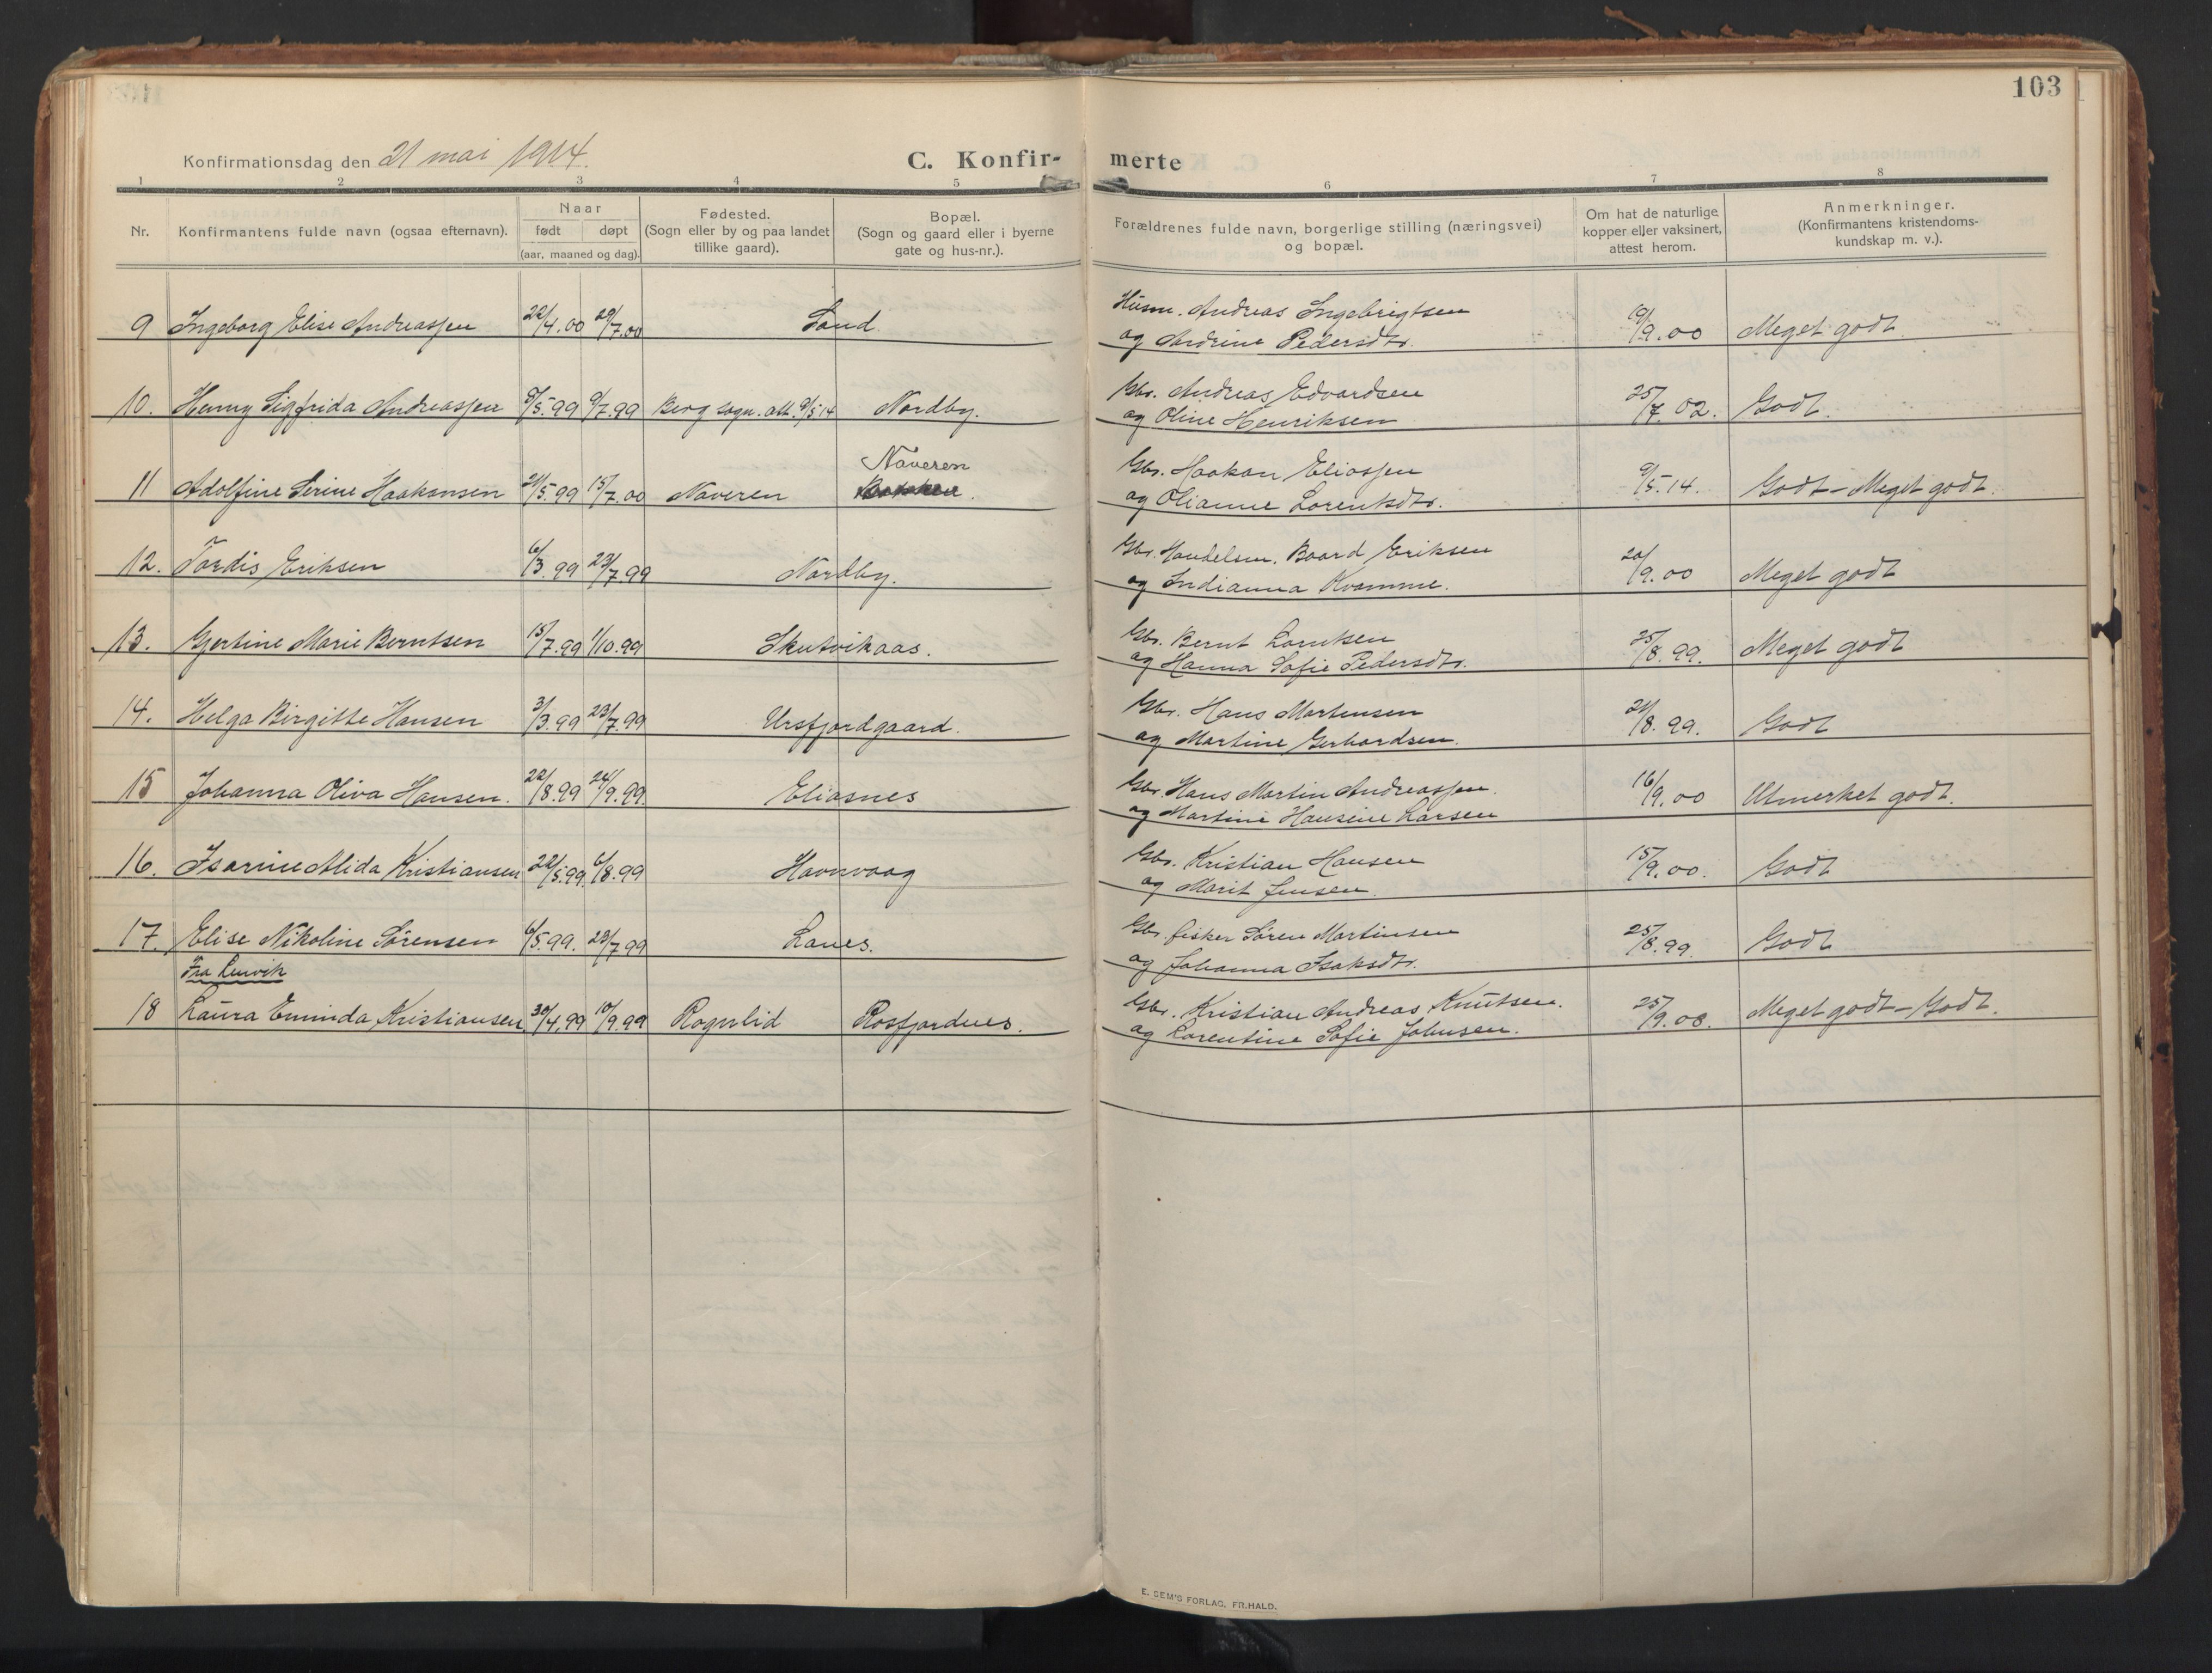 103
Konfirmationsdag den 21 mai 1914.
C. Konfir- merte
1 2 3 4 5 6 7 8
Nr.
Konfirmantens fulde navn (ogsaa efternavn).
Naar
født døpt
(aar, maaned og dag).
Fødested.
(Sogn eller by og paa landet
tillike gaard).
Bopæl.
(Sogn og gaard eller i byerne
gate og hus-nr.).
Forældrenes fulde navn, borgerlige stilling (næringsvei)
og bopæl.
Om hat de naturlige
kopper eller vaksinert,
attest herom.
Anmerkninger.
(Konfirmantens kristendoms-
kundskap m. v.).
9 Ingeborg Elise Andreassen 22/4.00 29/7.00 Sand Husm. Andreas Ingebrigtsen /9.00 Meget godt.
og Andrine Pedersdtr.
10. Henny Sigfrida Andreassen /5.99 9/7.99 Berg sogn. att. 9/5 14 Nordby. Gbr. Andreas Edvardsen 25/7.02. Godt.
og Oline Henriksen
Naveren
11 Adolfine Serine Haakonsen 21/5.99 15/7.00 Naveren Gbr. Haakon Eliassen 9/5.14. Godt - Meget godt.
og Olianne Lorentsdtr.
12. Tordis Eriksen 6/3.99 23/7.99 Nordby. Gbr. Handelsm. Baard Eriksen 20/9.00 Meget godt
og Indianna Kvamme.
13. Gjertine Marie Berntsen 15/7.99 1/10.99 Skutvikaas. Gbr. Bernt Lorntsen 25/8.99. Meget godt
og Hanna Sofie Pedersdtr.
14. Helga Birgitte Hansen 3/3.99 23/7.99 Ursfjordgaard. Gbr. Hans Mortensen 21/8.99. Godt
og Martine Gerhardsen.
15 Johanna Oliva Hansen. 22/8.99 24/9.99. Eliasnes Gbr. Hans Martin Andreassen. 16/9.00 Utmerket godt.
og Martine Hansine Larsen
16. Isarine Alida Kristiansen 22/5.99. 6/8.99 Havnvaag Gbr. Kristian Hansen 15/9.00. Godt
og Marit Jensen.
17. Elise Nikoline Sørensen 6/5.99. 23/7.99 Lanes. Gbr. fisker Søren Martinsen 25/8.99. Godt
og Johanna Isaksdtr.
Fra Lenvik
18 Laura Eminda Kristiansen 30/4.99 10/9.99 Rognlid Rosfjordnes. Gbr. Kristian Andreas Knutsen. 25/9.00. Meget godt - Godt.
og Lorentine Sofie Johnsen.
E. SEM'S FORLAG, FR.HALD.